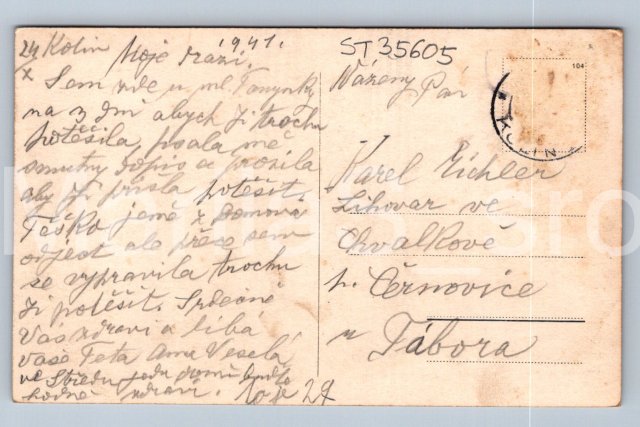 24 Kolin 1941.
X Moje drazí.
Sem zde u ml. Tonynky
na 3 dni abych ji trochu
potěšila, psala mě
smutny dopis a prosila
aby ji přišla potěšit.
Těško jemě z domova
odjest ale přece sem
se vypravila trochu
ji potěšit. Srdečně
Vás zdraví a líbá
vaše Teta Anna Veselá
ve Středu jedu domů buďte
hodně zdraví. 27
ST35605
Vážený Pán
Karel Eichler
Lihovar ve
Chvalkově
p. Černovice
u Tábora
104
KOLÍN